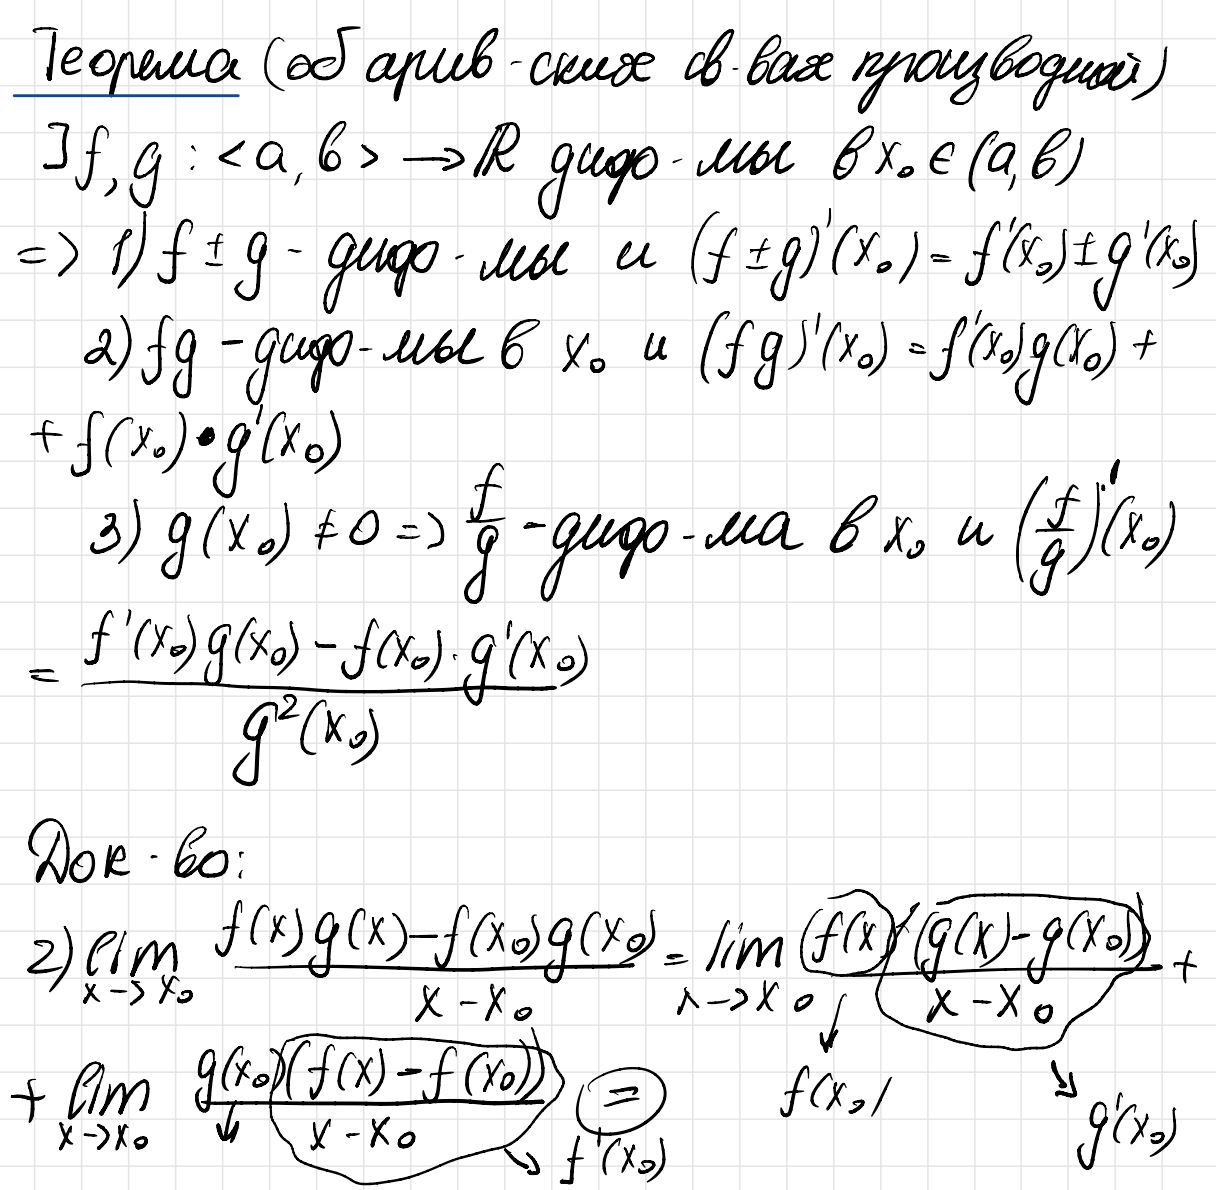 Теорема (об арив-ских св-вах производной)
] f, g : <a, b> → ℝ дифф-мы в x₀ ∈ (a, b)
=> 1) f ± g - дифф-мы и (f ± g)'(x₀) = f'(x₀) ± g'(x₀)
2) fg - дифф-мы в x₀ и (fg)'(x₀) = f'(x₀)g(x₀) +
+ f(x₀) • g'(x₀)
3) g(x₀) ≠ 0 => f/g - дифф-ма в x₀ и (f/g)'(x₀)
= (f'(x₀)g(x₀) - f(x₀) · g'(x₀)) / g²(x₀)
Док-во:
2) lim_{x→x₀} (f(x)g(x) - f(x₀)g(x₀)) / (x - x₀) = lim_{x→x₀} (f(x)(g(x) - g(x₀))) / (x - x₀) +
f(x₀) g'(x₀)
+ lim_{x→x₀} (g(x₀)(f(x) - f(x₀))) / (x - x₀) =
f'(x₀)